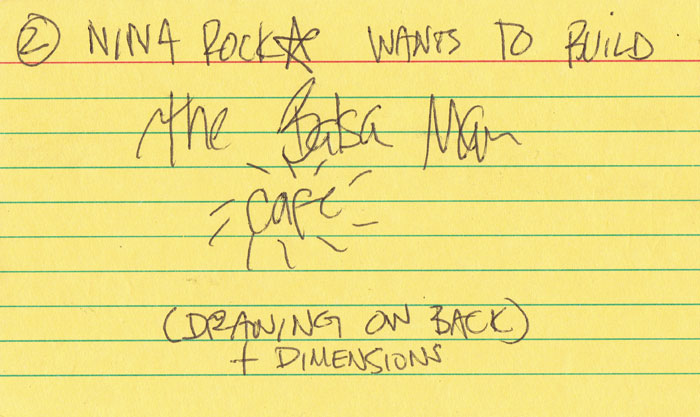 ② NINA ROCK☆ WANTS TO BUILD
The Balsa Man
café
(DRAWING ON BACK)
+ DIMENSIONS